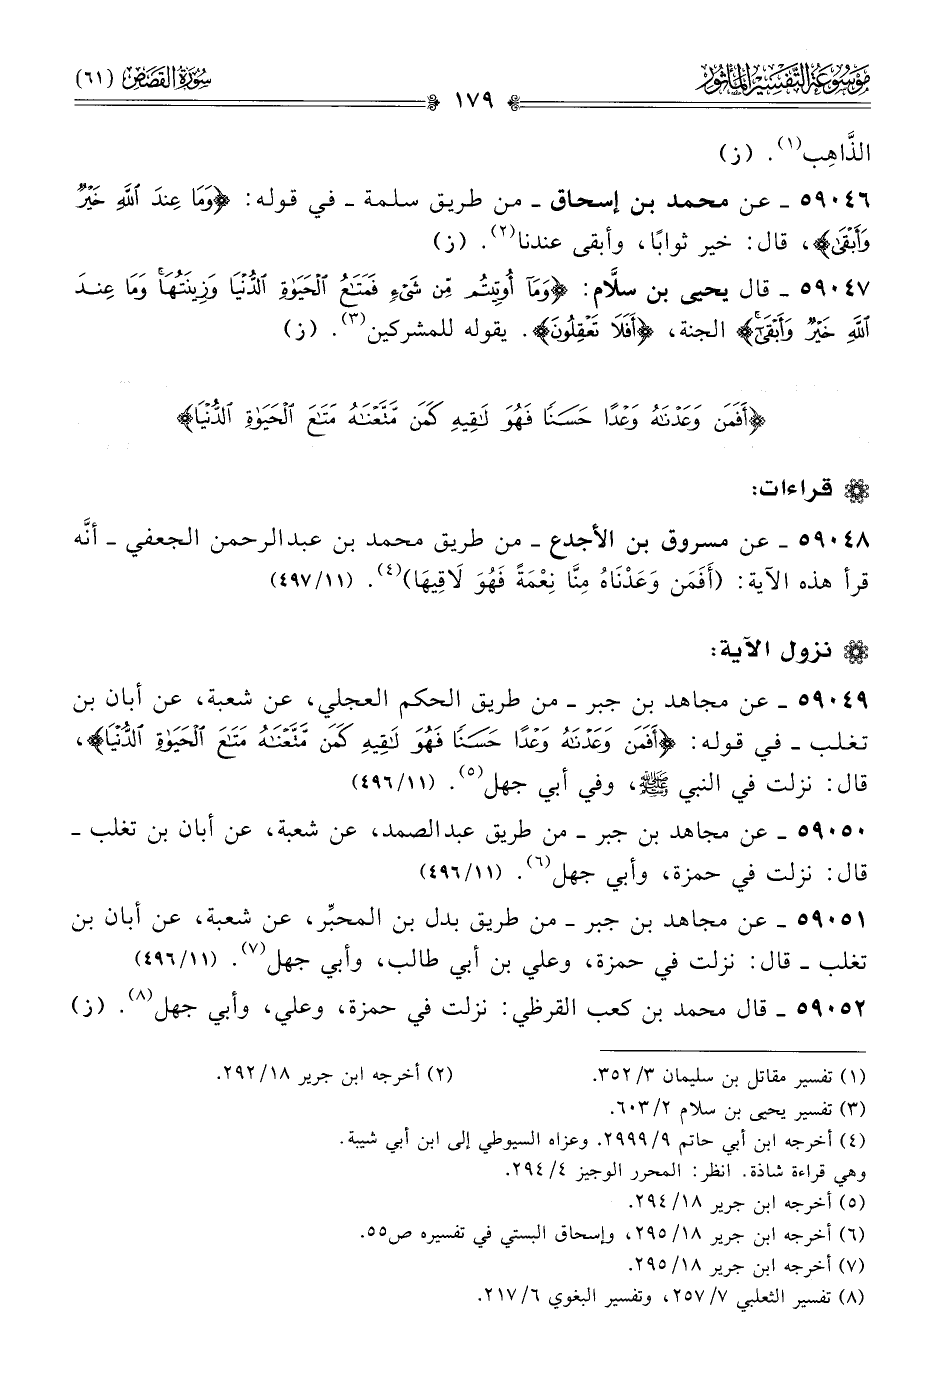 موسوعة التفسير المأثور
سورة القصص (٦١)
١٧٩
الذَّاهِب(١). (ز)
٥٩٠٤٦ ـ عن محمد بن إسحاق ـ من طريق سلمة ـ في قوله: ﴿وَمَا عِندَ ٱللَّهِ خَيْرٌ
وَأَبْقَىٰ﴾، قال: خير ثوابًا، وأبقى عندنا(٢). (ز)
٥٩٠٤٧ ـ قال يحيى بن سلَّام: ﴿وَمَآ أُوتِيتُم مِّن شَىْءٍ فَمَتَٰعُ ٱلْحَيَوٰةِ ٱلدُّنْيَا وَزِينَتُهَاۚ وَمَا عِندَ
ٱللَّهِ خَيْرٌ وَأَبْقَىٰٓۚ﴾ الجنة، ﴿أَفَلَا تَعْقِلُونَ﴾. يقوله للمشركين(٣). (ز)
﴿أَفَمَن وَعَدْنَٰهُ وَعْدًا حَسَنًا فَهُوَ لَٰقِيهِ كَمَن مَّتَّعْنَٰهُ مَتَٰعَ ٱلْحَيَوٰةِ ٱلدُّنْيَا﴾
قراءات:
٥٩٠٤٨ ـ عن مسروق بن الأجدع ـ من طريق محمد بن عبدالرحمن الجعفي ـ أنَّه
قرأ هذه الآية: (أَفَمَن وَعَدْنَاهُ مِنَّا نِعْمَةً فَهُوَ لَاقِيهَا)(٤). (٤٩٧/١١)
نزول الآية:
٥٩٠٤٩ ـ عن مجاهد بن جبر ـ من طريق الحكم العجلي، عن شعبة، عن أبان بن
تغلب ـ في قوله: ﴿أَفَمَن وَعَدْنَٰهُ وَعْدًا حَسَنًا فَهُوَ لَٰقِيهِ كَمَن مَّتَّعْنَٰهُ مَتَٰعَ ٱلْحَيَوٰةِ ٱلدُّنْيَا﴾،
قال: نزلت في النبي ﷺ، وفي أبي جهل(٥). (٤٩٦/١١)
٥٩٠٥٠ ـ عن مجاهد بن جبر ـ من طريق عبدالصمد، عن شعبة، عن أبان بن تغلب ـ
قال: نزلت في حمزة، وأبي جهل(٦). (٤٩٦/١١)
٥٩٠٥١ ـ عن مجاهد بن جبر ـ من طريق بدل بن المحبِّر، عن شعبة، عن أبان بن
تغلب ـ قال: نزلت في حمزة، وعلي بن أبي طالب، وأبي جهل(٧). (٤٩٦/١١)
٥٩٠٥٢ ـ قال محمد بن كعب القرظي: نزلت في حمزة، وعلي، وأبي جهل(٨). (ز)
(١) تفسير مقاتل بن سليمان ٣٥٢/٣.
(٢) أخرجه ابن جرير ٢٩٢/١٨.
(٣) تفسير يحيى بن سلام ٦٠٣/٢.
(٤) أخرجه ابن أبي حاتم ٢٩٩٩/٩. وعزاه السيوطي إلى ابن أبي شيبة.
وهي قراءة شاذة. انظر: المحرر الوجيز ٢٩٤/٤.
(٥) أخرجه ابن جرير ٢٩٤/١٨.
(٦) أخرجه ابن جرير ٢٩٥/١٨، وإسحاق البستي في تفسيره ص٥٥.
(٧) أخرجه ابن جرير ٢٩٥/١٨.
(٨) تفسير الثعلبي ٢٥٧/٧، وتفسير البغوي ٢١٧/٦.